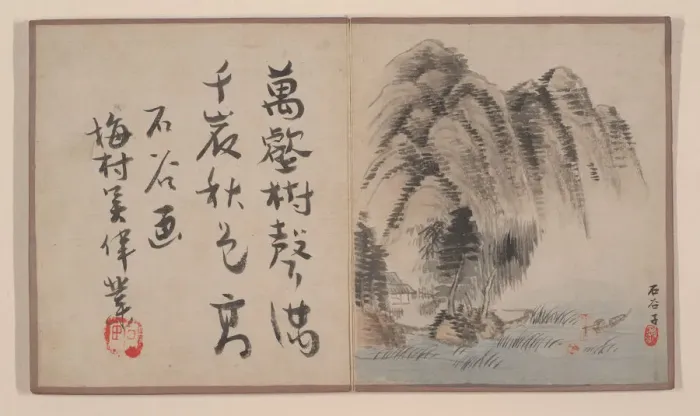 萬壑樹聲満
千崖秋色高
石谷画
梅村吴偉業
石谷子